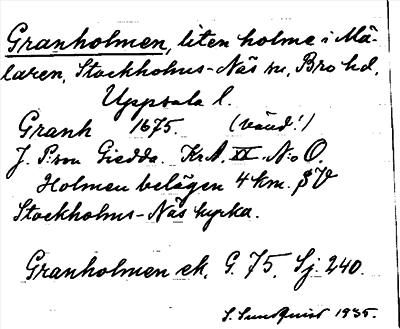 Granholmen, liten holme i Mä-
laren, Stockholms-Näs sn, Bro hd,
Uppsala l.
Granh 1675. (vänd!)
J. P:son Giedda. KrA. XX. N:o O.
Holmen belägen 4 km. SV
Stockholms-Näs kyrka.
Granholmen ek. G. 75. Sj. 240.
S. Sundquist 1935.